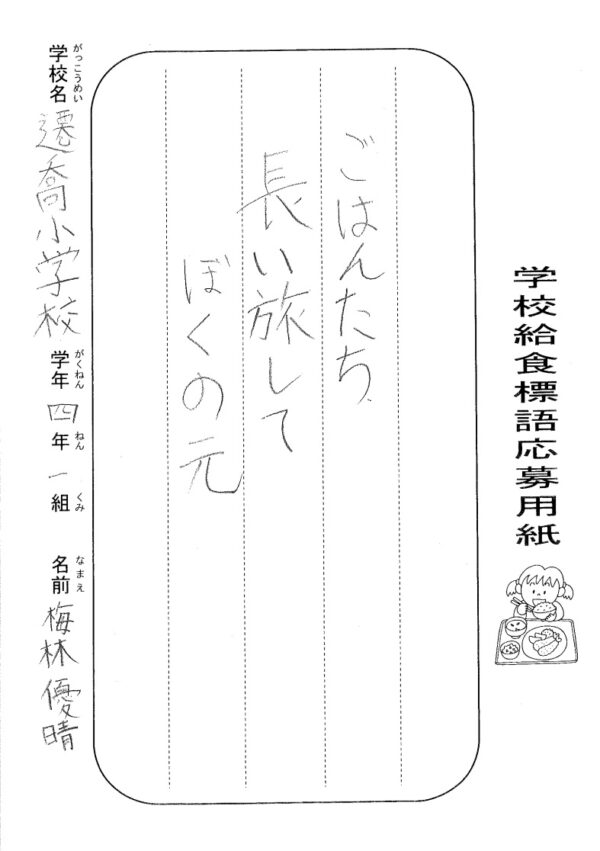 学校給食標語応募用紙
ごはんたち
長い旅して
ぼくの元
がっこうめい
学校名 遷喬小学校
がくねん ねん くみ
学年 四年 一組
なまえ
名前 梅林優晴